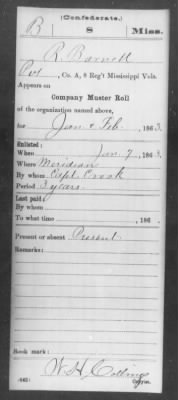 (Confederate.)
B 8 Miss.
R. Barnett
Pvt, Co. A, 8 Reg't Mississippi Vols.
Appears on
Company Muster Roll
of the organization named above,
for Jan & Feb, 1863.
Enlisted:
When Jan 7, 1863.
Where Meridian
By whom Capt. Crook
Period 3 years.
Last paid:
By whom
To what time , 186 .
Present or absent Present
Remarks:
Book mark:
W. H. Collins
(642) Copyist.